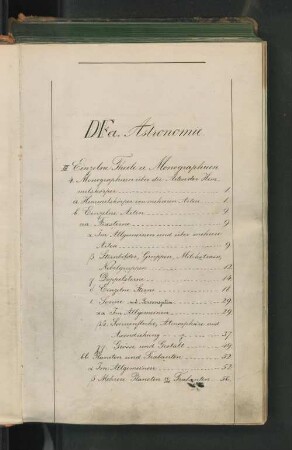 DFa. Astronomie
III Einzelne Theile u Monographieen
4. Monographieen über die Arten der Him
melskörper 1
a Himmelskörper von mehreren Arten 1
b Einzelne Arten 9
aa Fixsterne 9
α Im Allgemeinen und über mehrere
Arten 9
β Sternbilder, Gruppen, Milchstrasse,
Nebelgruppen 12
γ Doppelsterne 14
δ Einzelne Sterne 18
ε Sonne 29
αα Im Allgemeinen 29
ββ Sonnenflecke, Atmosphäre und
Ausstrahlung 37
γγ Grösse und Gestalt 49
bb Planeten und Trabanten 52
α Im Allgemeinen 52
β Mehrere Planeten Trabanten 56